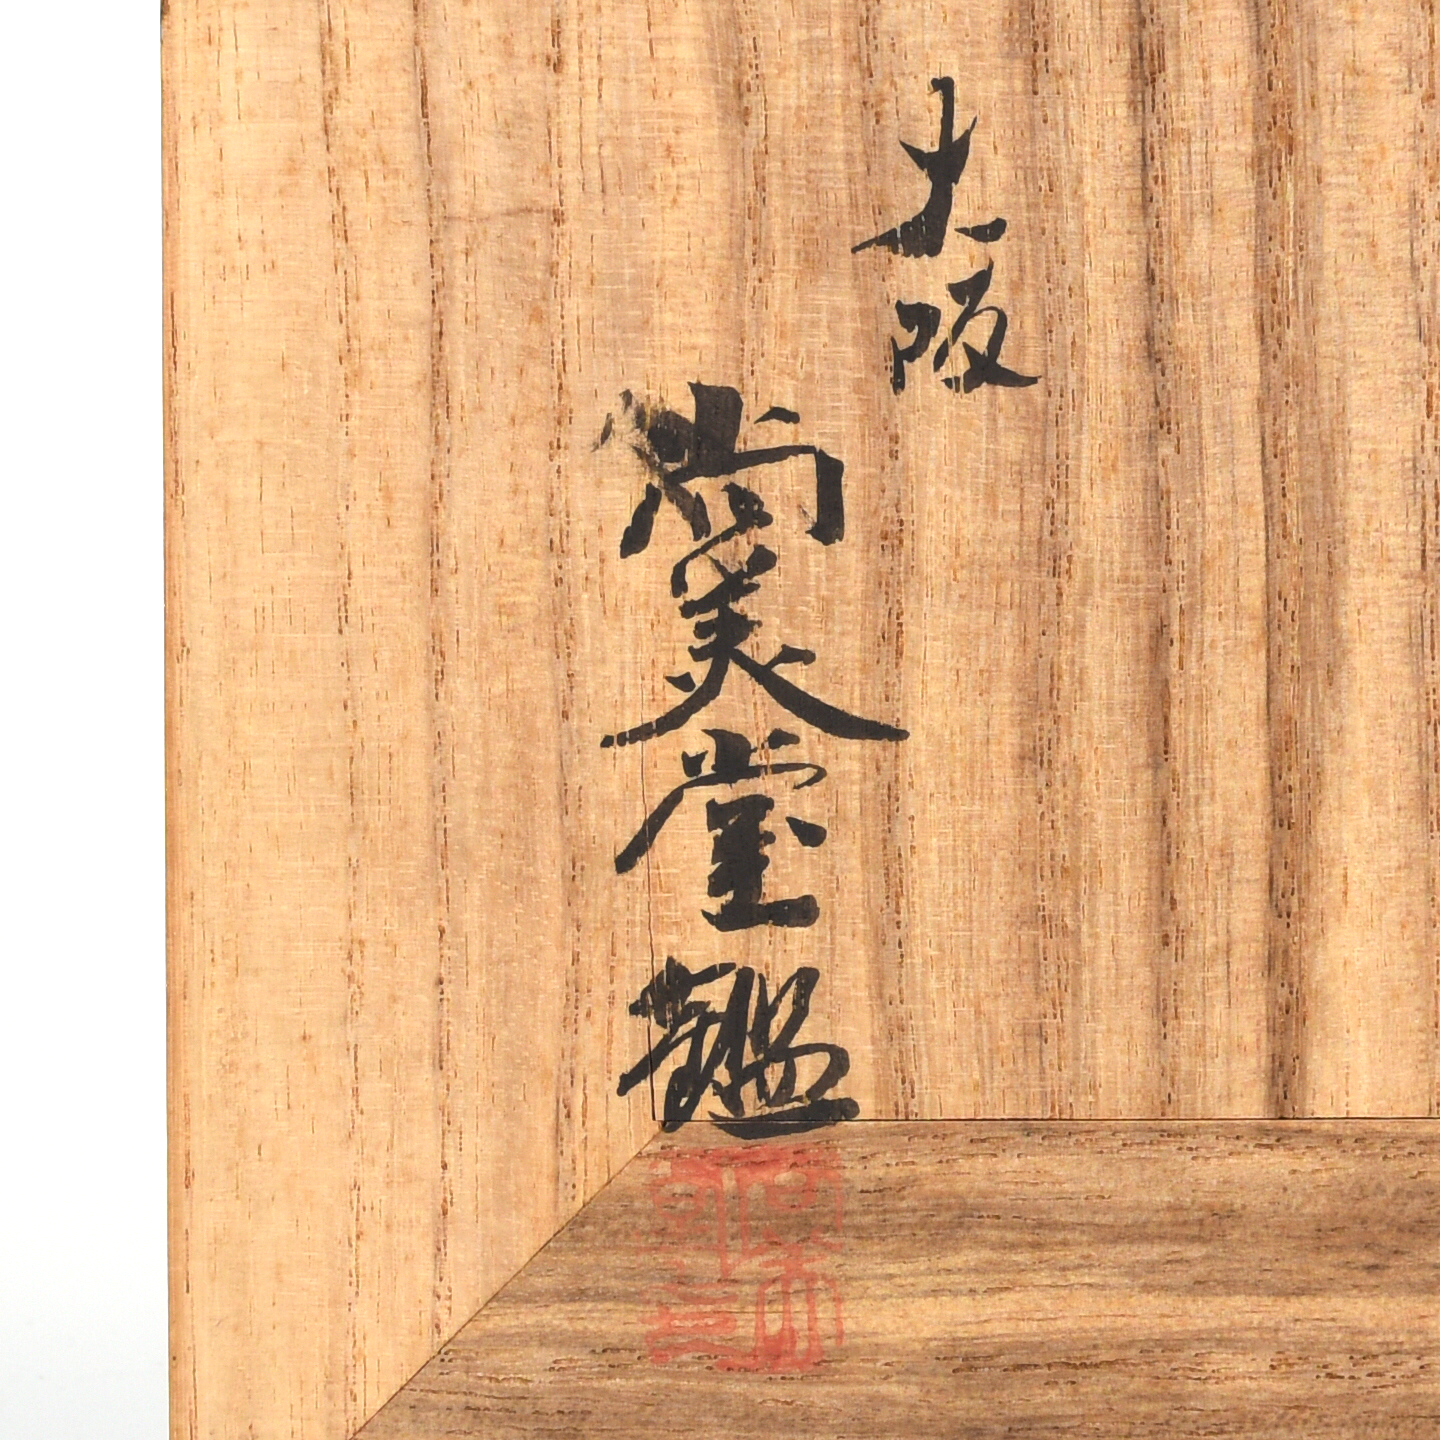 大阪
尚美堂鑑